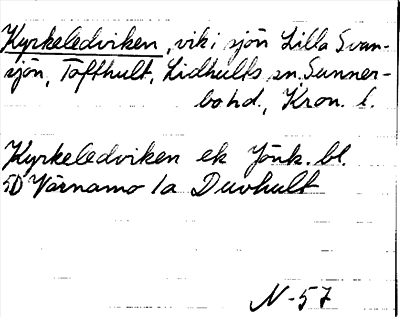 Kyrkeledviken, vik i sjön Lilla Svan-
sjön, Tofthult, Lidhults sn. Sunner-
bo hd., Kron. l.
Kyrkeledviken ek Jönk. bl.
5D Värnamo 1a Duvhult
N-57